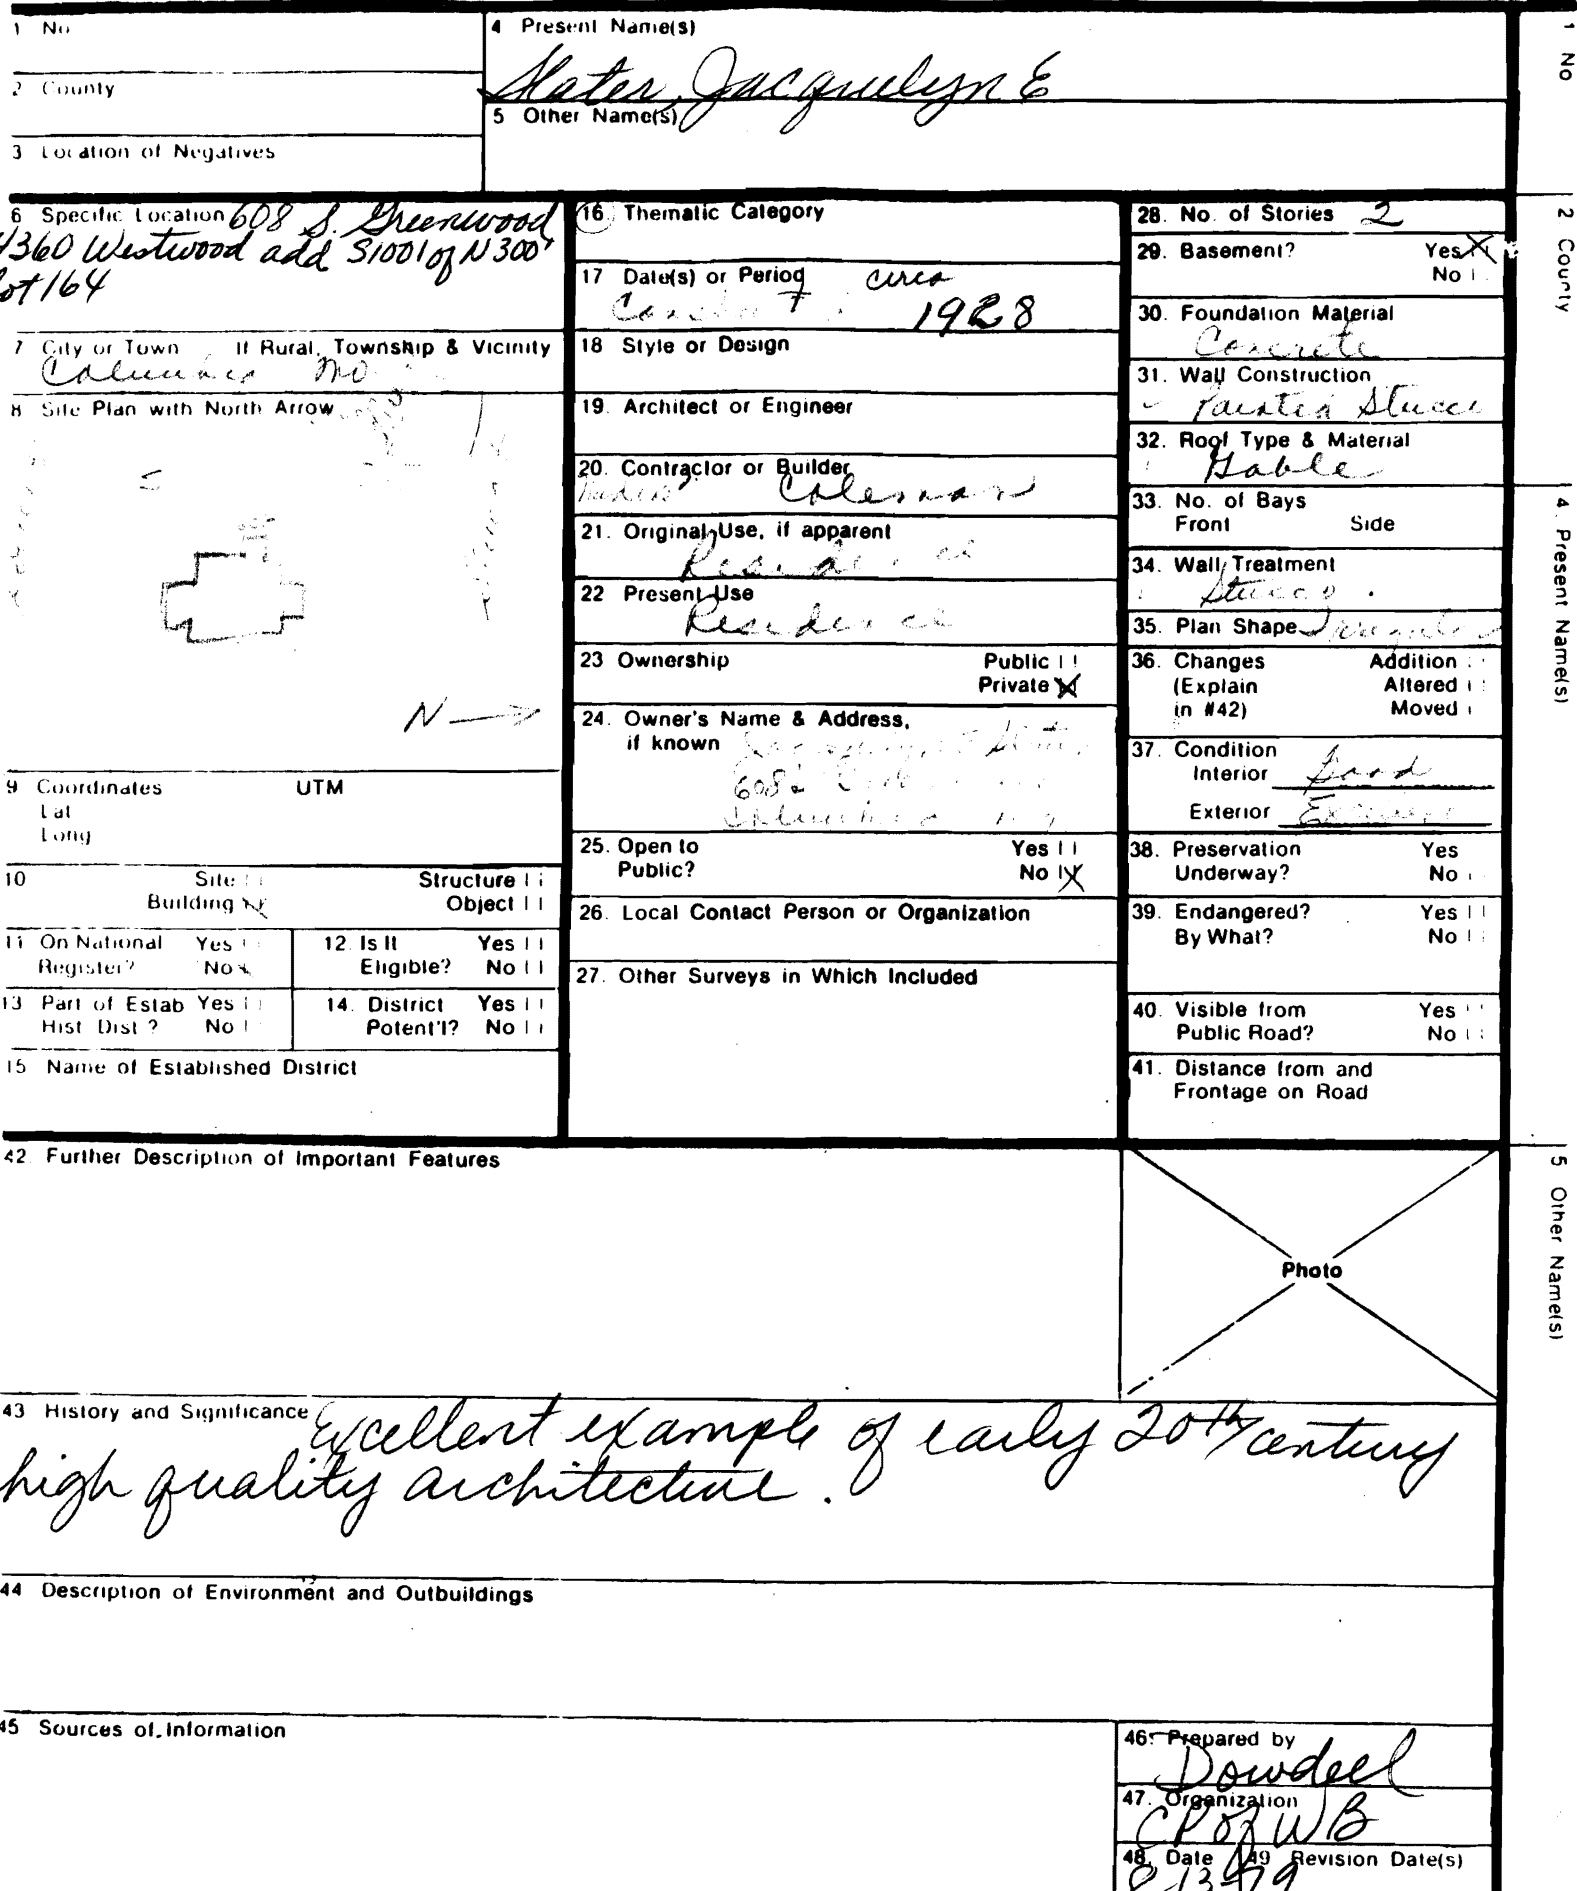 1 No
4 Present Name(s)
Slater, Jacquelyn E
2 County
5 Other Name(s)
3 Location of Negatives
6 Specific Location 608 S. Greenwood
360 Westwood add S1001 of N 300'
Lot 164
7 City or Town If Rural, Township & Vicinity
Columbia Mo
8 Site Plan with North Arrow
N
9 Coordinates UTM
Lat
Long
10 Site Structure
Building Object
11 On National Register? Yes No X
12. Is It Eligible? Yes No
13 Part of Estab Hist Dist? Yes No
14. District Potent'l? Yes No
15 Name of Established District
16. Thematic Category
17 Date(s) or Period circa
1928
18 Style or Design
19. Architect or Engineer
20. Contractor or Builder
Coleman
21. Original Use, if apparent
Residence
22 Present Use
Residence
23 Ownership Public
Private X
24. Owner's Name & Address,
if known
608
Columbia
25. Open to Yes
Public? No X
26. Local Contact Person or Organization
27. Other Surveys in Which Included
28. No. of Stories 2
29. Basement? Yes X
No
30. Foundation Material
Concrete
31. Wall Construction
Painted Stucco
32. Roof Type & Material
Gable
33. No. of Bays
Front Side
34. Wall Treatment
Stucco
35. Plan Shape Irregular
36. Changes Addition
(Explain Altered
in #42) Moved
37. Condition
Interior Good
Exterior Excellent
38. Preservation Yes
Underway? No
39. Endangered? Yes
By What? No
40. Visible from Yes
Public Road? No
41. Distance from and
Frontage on Road
42. Further Description of Important Features
Photo
43 History and Significance Excellent example of early 20th century
high quality architecture.
44 Description of Environment and Outbuildings
45 Sources of Information
46. Prepared by
Dowdell
47. Organization
CP of WB
48. Date 49 Revision Date(s)
8 13 79
1 No
2 County
4 Present Name(s)
5 Other Name(s)